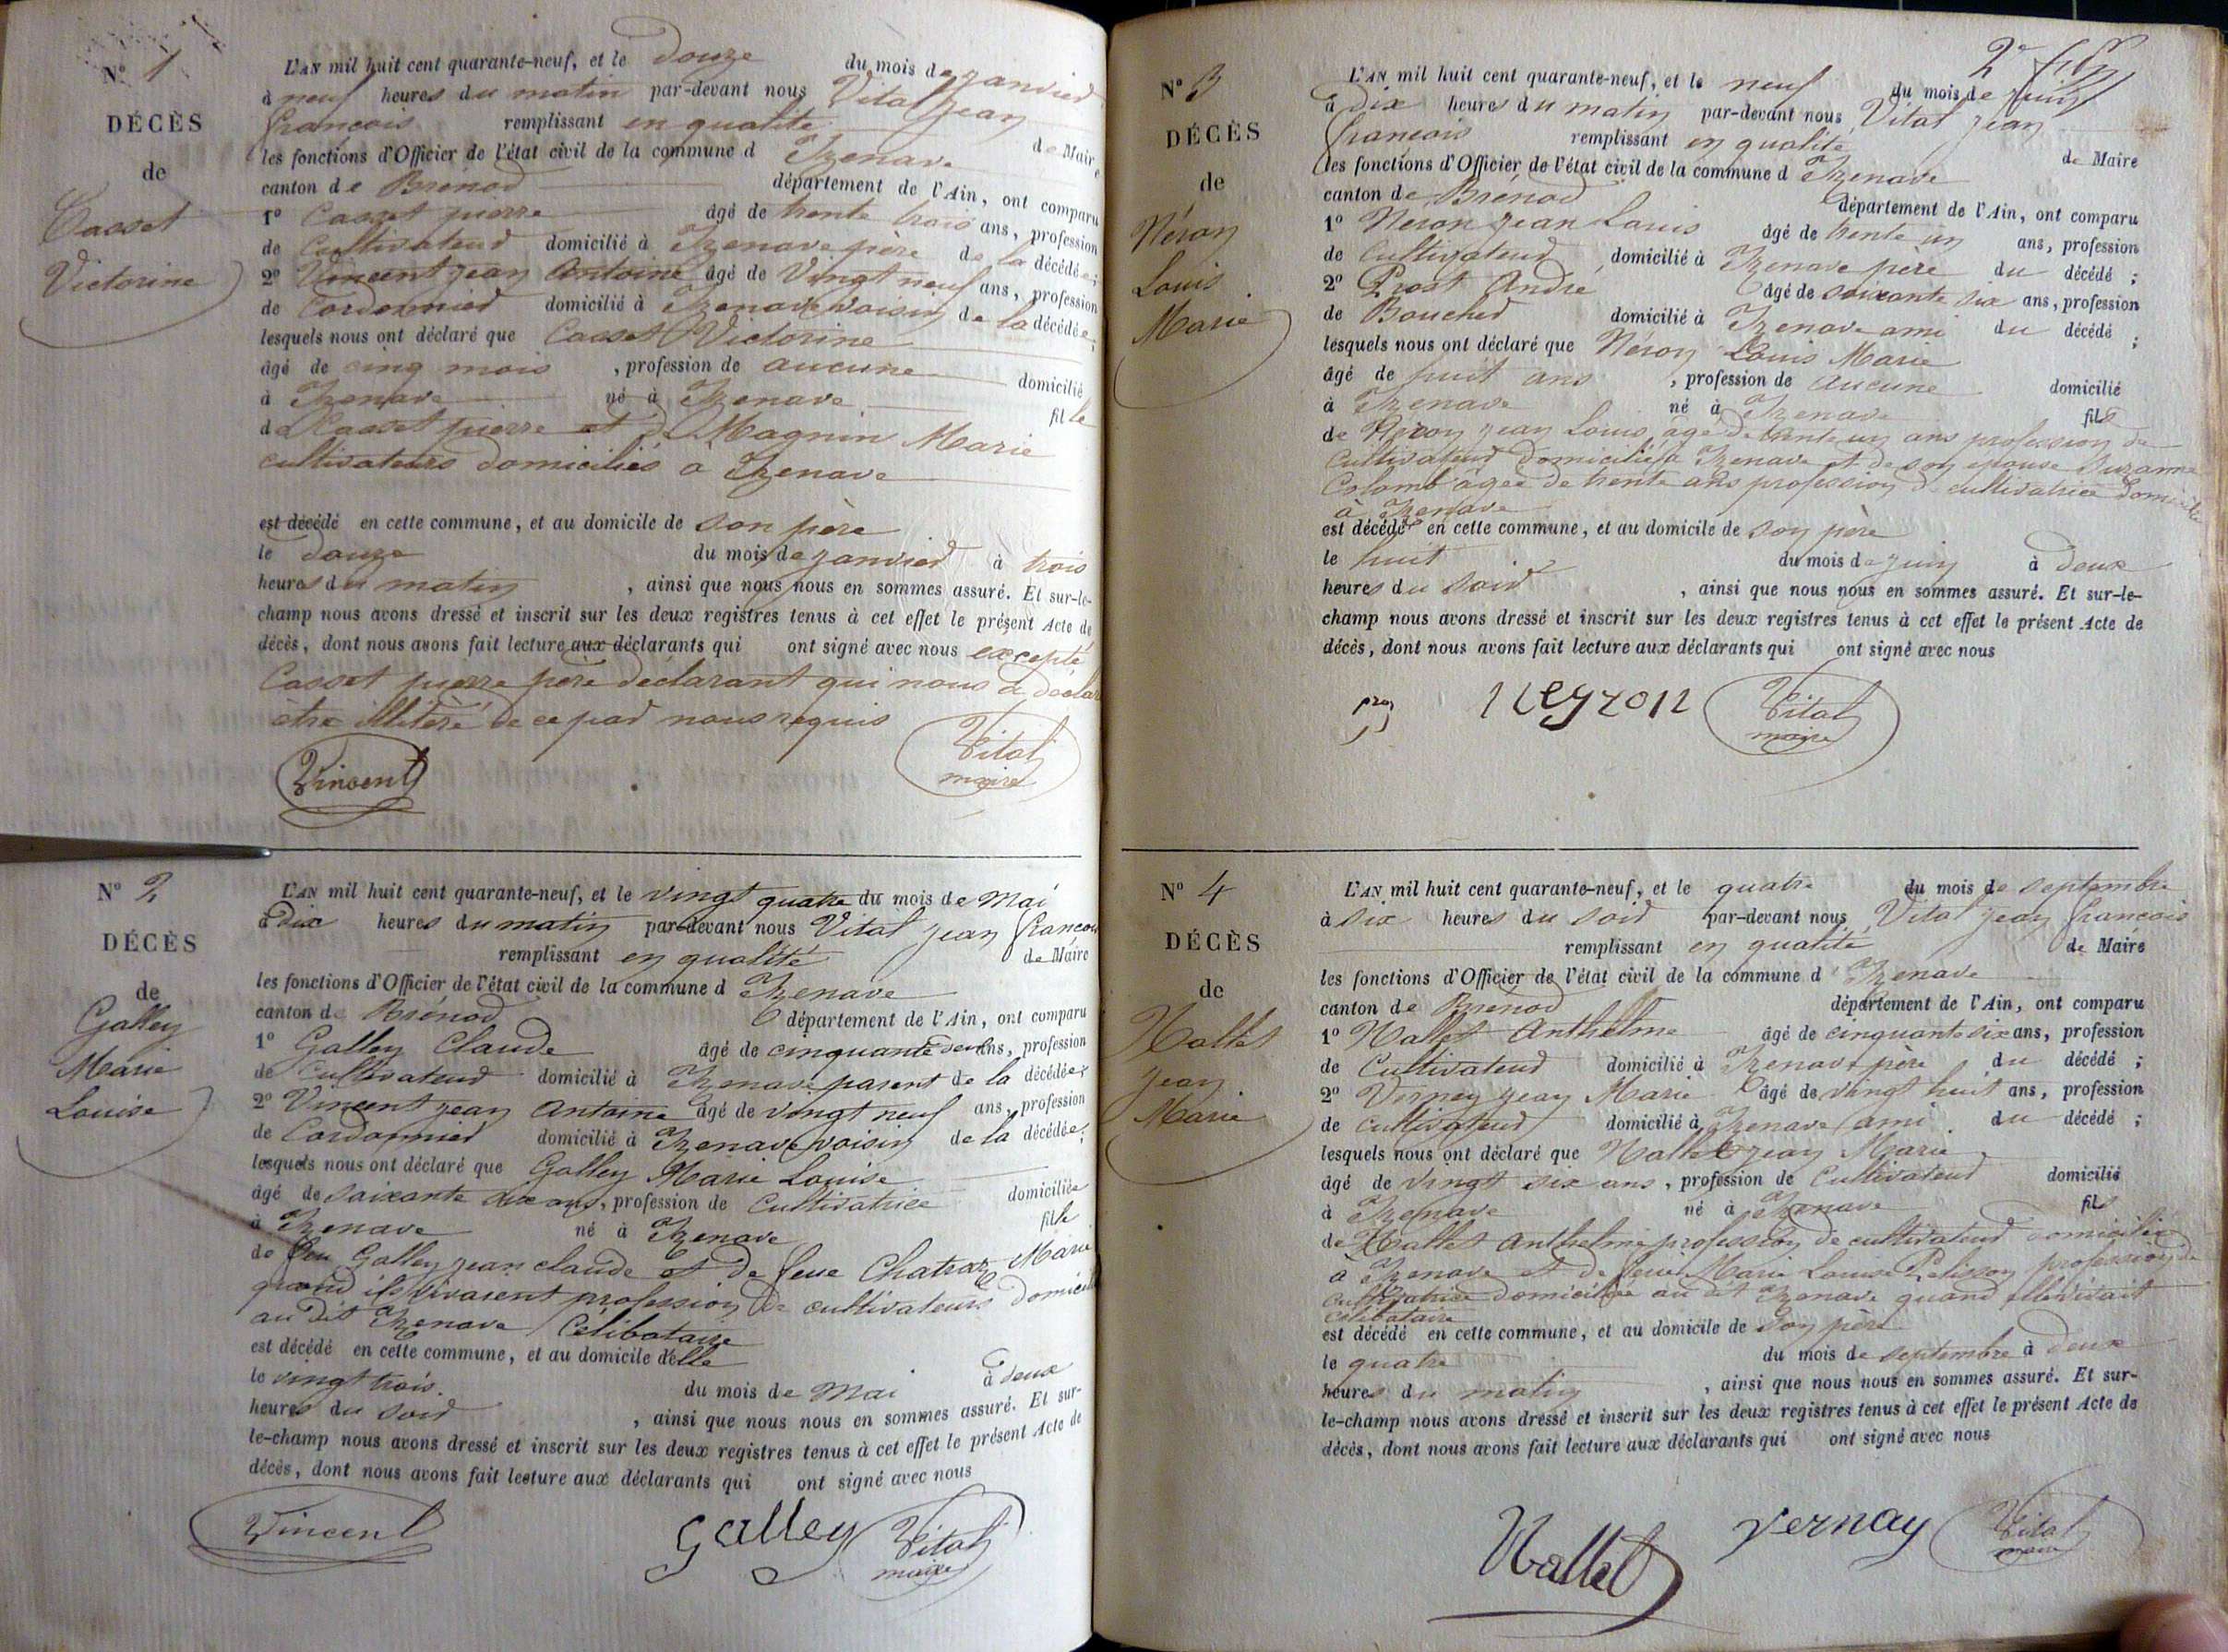 N° 1
DÉCÈS
de
Casset
Victorine
L'AN mil huit cent quarante-neuf, et le douze du mois de janvier
à neuf heures du matin par-devant nous Vital Jean
françois remplissant en qualité de Maire
les fonctions d'Officier de l'état civil de la commune d'Izenave
canton de Brénod département de l'Ain, ont comparu
1° Casset pierre âgé de trente trois ans, profession
de Cultivateur domicilié à Izenave père de la décédée;
2° Vincent jean Antoine âgé de Vingt neuf ans, profession
de Cordonnier domicilié à Izenave voisin de la décédée;
lesquels nous ont déclaré que Casset Victorine
âgé de cinq mois, profession de aucune domicilié
à Izenave né à Izenave fille
de Casset pierre et de Magnin Marie
cultivateurs domiciliés à Izenave
est décédé en cette commune, et au domicile de son père
le douze du mois de janvier à trois
heures du matin, ainsi que nous nous en sommes assuré. Et sur-le-
champ nous avons dressé et inscrit sur les deux registres tenus à cet effet le présent Acte de
décès, dont nous avons fait lecture aux déclarants qui ont signé avec nous excepté
Casset pierre père déclarant qui nous a déclaré
être illitéré de ce par nous requis
Vincent
Vital
maire
N° 2
DÉCÈS
de
Galley
Marie
Louise
L'AN mil huit cent quarante-neuf, et le vingt quatre du mois de Mai
à Dix heures du matin par-devant nous Vital jean françois
remplissant en qualité de Maire
les fonctions d'Officier de l'état civil de la commune d Izenave
canton de Brénod département de l'Ain, ont comparu
1° Galley Claude âgé de cinquante ans, profession
de Cultivateur domicilié à Izenave parent de la décédée;
2° Vincent jean Antoine âgé de vingt neuf ans, profession
de Cordonnier domicilié à Izenave voisin de la décédée;
lesquels nous ont déclaré que Galley Marie Louise
âgé de soixante dix ans, profession de Cultivatrice domiciliée
à Izenave né à Izenave fille
de feu Galley jean claude et de feue Chatraz Marie
quand ils vivaient profession de cultivateurs domiciliés
au dit Izenave Celibataire
est décédé en cette commune, et au domicile d'elle
le vingt trois du mois de Mai à deux
heures du soir, ainsi que nous nous en sommes assuré. Et sur-
le-champ nous avons dressé et inscrit sur les deux registres tenus à cet effet le présent Acte de
décès, dont nous avons fait lecture aux déclarants qui ont signé avec nous
Vincent
Galley
Vital
maire
2e
N° 3
DÉCÈS
de
Néron
Louis
Marie
L'AN mil huit cent quarante-neuf, et le neuf du mois de juin
à dix heures du matin par-devant nous Vital jean
françois remplissant en qualité de Maire
les fonctions d'Officier de l'état civil de la commune d Izenave
canton de Brénod département de l'Ain, ont comparu
1° Neron jean Louis âgé de trente un ans, profession
de Cultivateur domicilié à Izenave père du décédé;
2° Prost André âgé de soixante six ans, profession
de Boucher domicilié à Izenave ami du décédé;
lesquels nous ont déclaré que Néron Louis Marie
âgé de huit ans, profession de aucune domicilié
à Izenave né à Izenave fils
de Néron jean Louis agé de trente un ans profession de
Cultivateur domicilié à Izenave et de son epouse Suzanne
Colomb agée de trente ans profession de cultivatrice domiciliée
à Izenave
est décédé en cette commune, et au domicile de son père
le huit du mois de juin à deux
heures du soir, ainsi que nous nous en sommes assuré. Et sur-le-
champ nous avons dressé et inscrit sur les deux registres tenus à cet effet le présent Acte de
décès, dont nous avons fait lecture aux déclarants qui ont signé avec nous
neyron
Vital
maire
N° 4
DÉCÈS
de
Vallet
Jean
Marie
L'AN mil huit cent quarante-neuf, et le quatre du mois de septembre
à six heures du soir par-devant nous Vital jean françois
remplissant en qualité de Maire
les fonctions d'Officier de l'état civil de la commune d'Izenave
canton de Brénod département de l'Ain, ont comparu
1° Vallet Anthelme âgé de cinquante six ans, profession
de Cultivateur domicilié à Izenave père du décédé;
2° Verney jean Marie âgé de vingt huit ans, profession
de cultivateur domicilié à Izenave ami du décédé;
lesquels nous ont déclaré que Vallet jean Marie
âgé de vingt six ans, profession de Cultivateur domicilié
à Izenave né à Izenave fils
de Vallet Anthelme profession de cultivateur domicilié
à Izenave et de feue Marie Louise Pelisson profession de
cultivatrice domiciliée au dit Izenave quand elle vivait
celibataire
est décédé en cette commune, et au domicile de son père
le quatre du mois de septembre à deux
heures du matin, ainsi que nous nous en sommes assuré. Et sur-
le-champ nous avons dressé et inscrit sur les deux registres tenus à cet effet le présent Acte de
décès, dont nous avons fait lecture aux déclarants qui ont signé avec nous
Vallet
vernay
Vital
maire